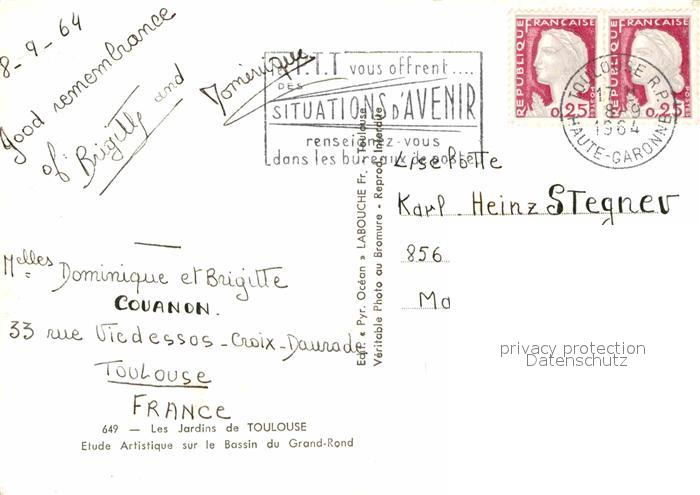 8-9-64
Good remembrance
of Brigitte and Dominique
P.T.T vous offrent....
DES
SITUATIONS D'AVENIR
renseignez-vous
dans les bureaux de poste
REPUBLIQUE FRANÇAISE
0,25
POSTES
REPUBLIQUE FRANÇAISE
0,25
POSTES
TOULOUSE R.P.
8-9
1964
HAUTE-GARONNE
Liselotte
Karl-Heinz Stegner
856
Ma
Melles Dominique et Brigitte
COUANON.
33 rue Vicdessos-Croix-Daurade
TOULOUSE
FRANCE
649 — Les Jardins de TOULOUSE
Etude Artistique sur le Bassin du Grand-Rond
Edit. « Pyr. Océan » LABOUCHE Fr. Toulouse
Véritable Photo au Bromure - Reprod. Interdite
privacy protection
Datenschutz